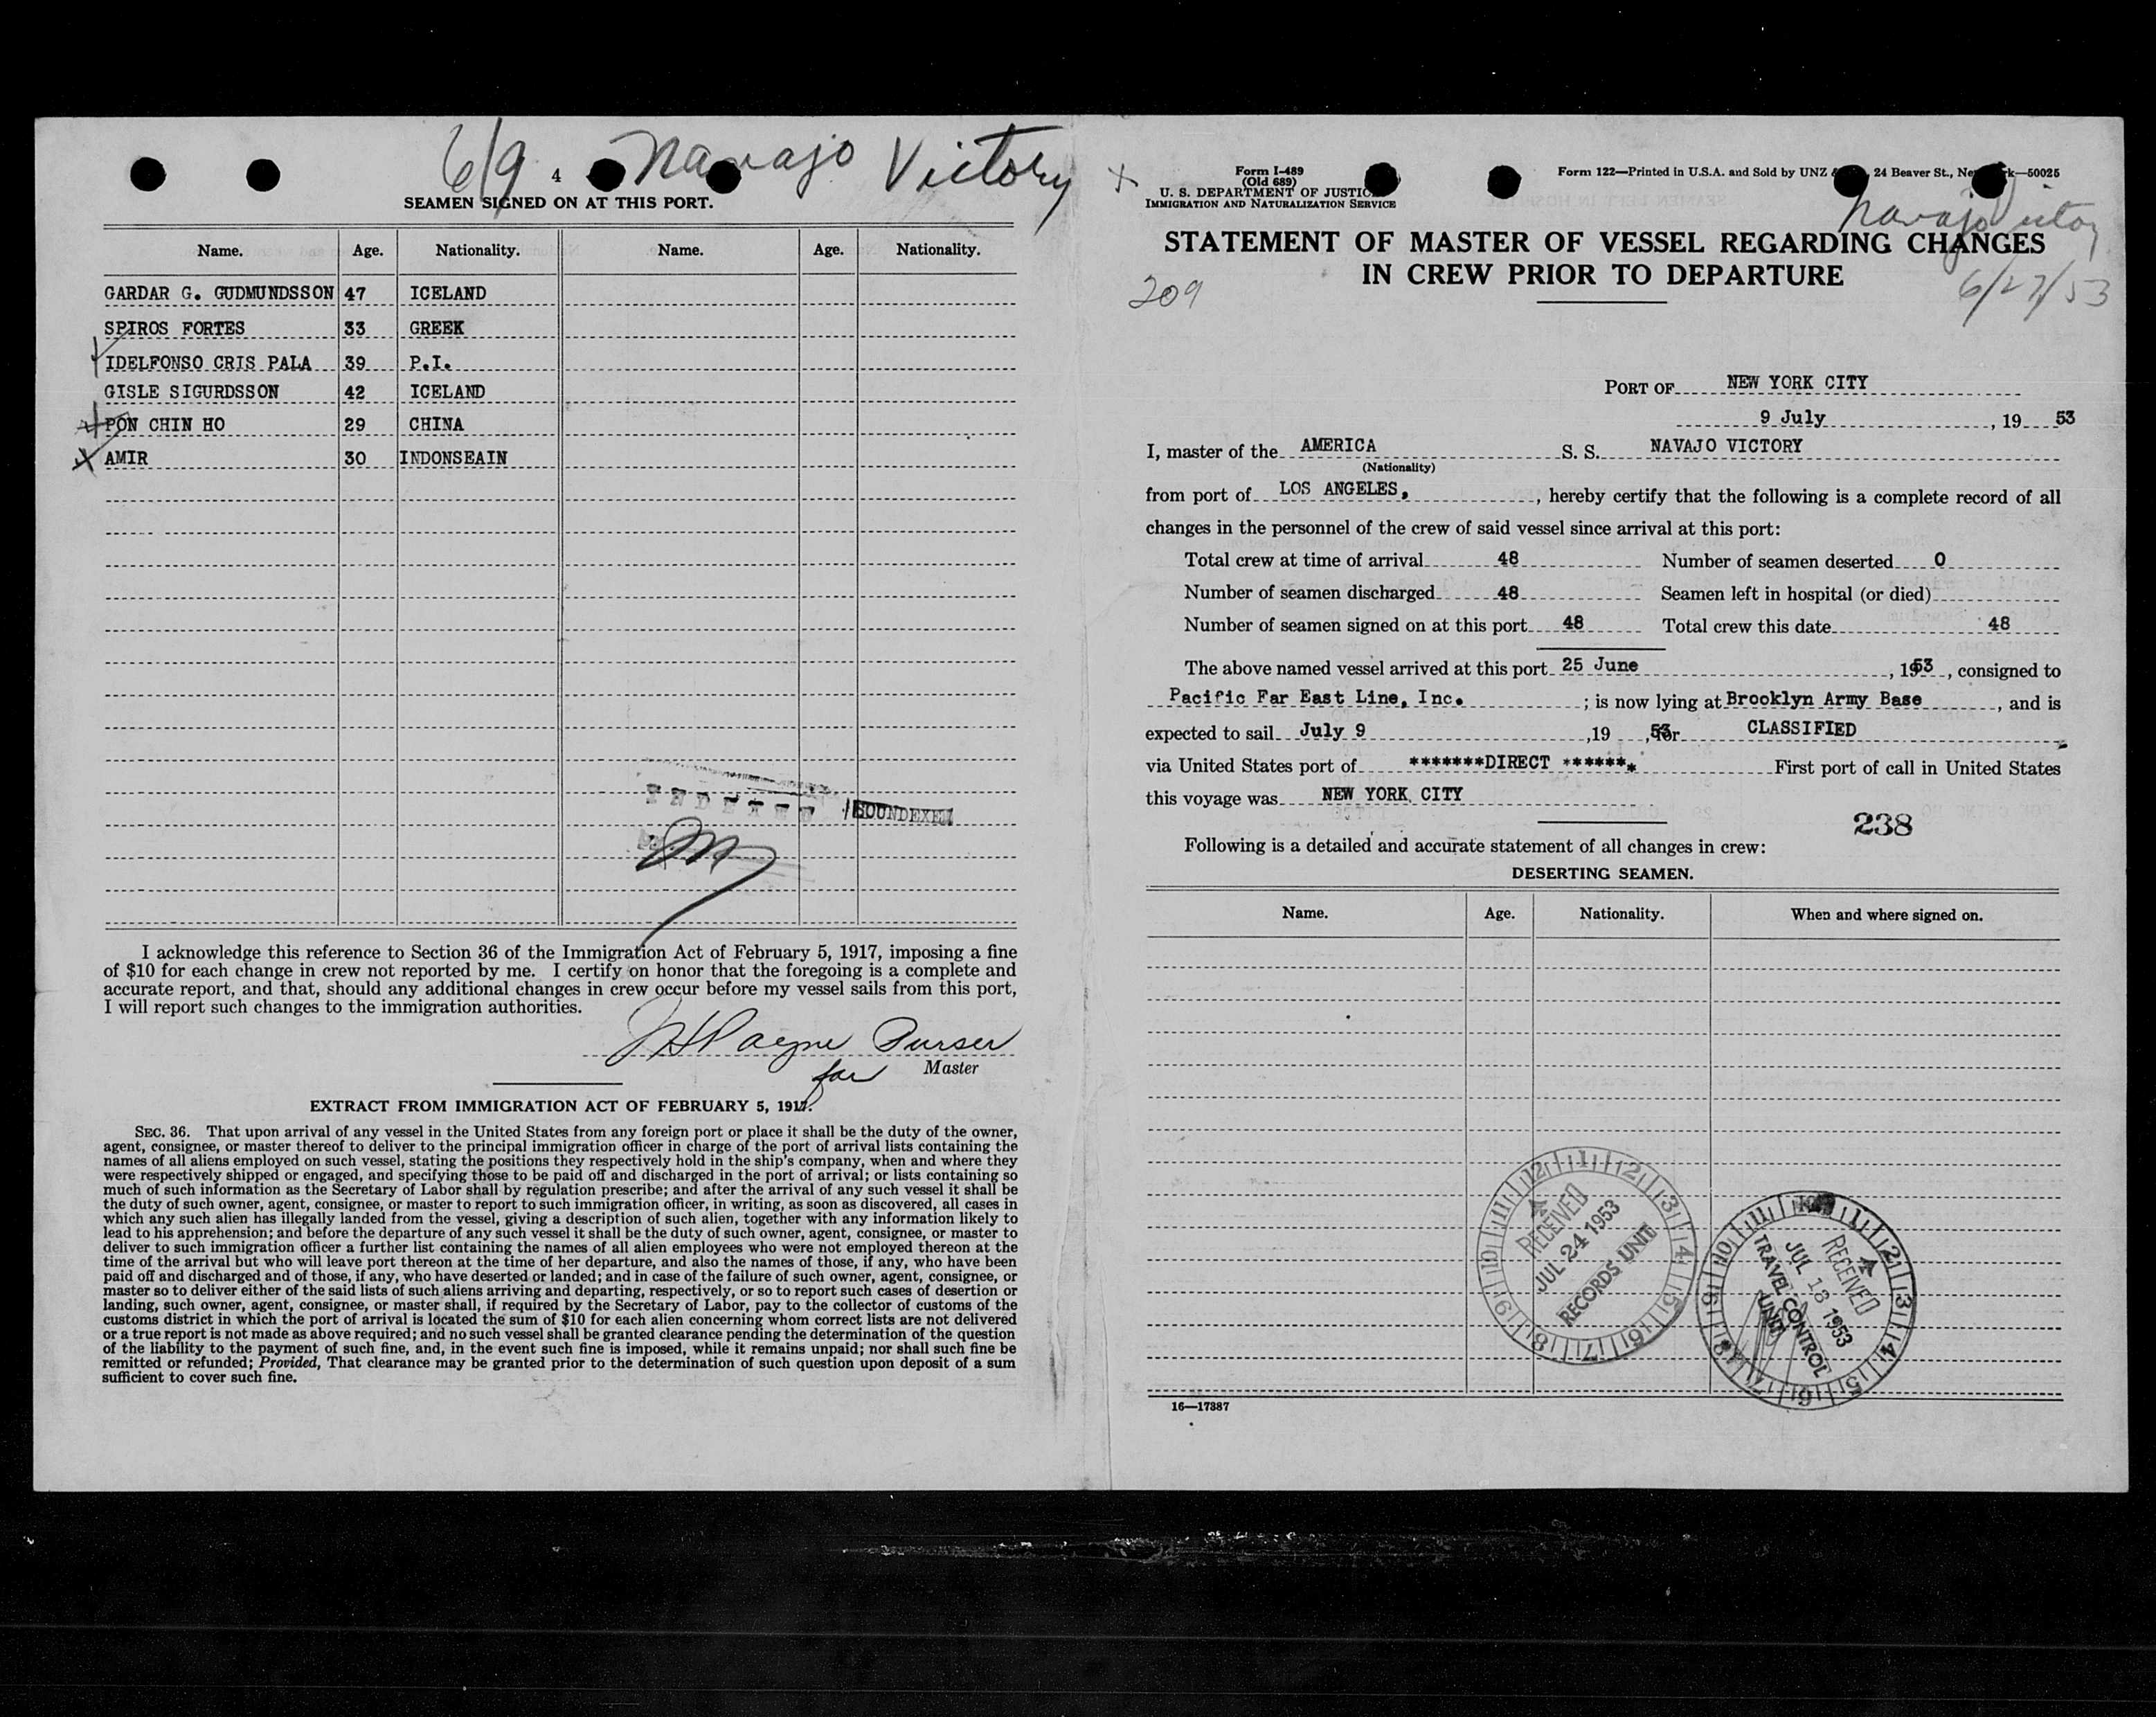 6/9 4 Navajo Victory
SEAMEN SIGNED ON AT THIS PORT.
Name. Age. Nationality. Name. Age. Nationality.
GARDAR G. GUDMUNDSSON 47 ICELAND
SPIROS FORTES 33 GREEK
IDELFONSO CRIS PALA 39 P.I.
GISLE SIGURDSSON 42 ICELAND
PON CHIN HO 29 CHINA
X AMIR 30 INDONSEAIN
SOUNDEXED
I acknowledge this reference to Section 36 of the Immigration Act of February 5, 1917, imposing a fine
of $10 for each change in crew not reported by me. I certify on honor that the foregoing is a complete and
accurate report, and that, should any additional changes in crew occur before my vessel sails from this port,
I will report such changes to the immigration authorities.
Payne Purser
for Master
EXTRACT FROM IMMIGRATION ACT OF FEBRUARY 5, 1917.
SEC. 36. That upon arrival of any vessel in the United States from any foreign port or place it shall be the duty of the owner,
agent, consignee, or master thereof to deliver to the principal immigration officer in charge of the port of arrival lists containing the
names of all aliens employed on such vessel, stating the positions they respectively hold in the ship's company, when and where they
were respectively shipped or engaged, and specifying those to be paid off and discharged in the port of arrival; or lists containing so
much of such information as the Secretary of Labor shall by regulation prescribe; and after the arrival of any such vessel it shall be
the duty of such owner, agent, consignee, or master to report to such immigration officer, in writing, as soon as discovered, all cases in
which any such alien has illegally landed from the vessel, giving a description of such alien, together with any information likely to
lead to his apprehension; and before the departure of any such vessel it shall be the duty of such owner, agent, consignee, or master to
deliver to such immigration officer a further list containing the names of all alien employees who were not employed thereon at the
time of the arrival but who will leave port thereon at the time of her departure, and also the names of those, if any, who have been
paid off and discharged and of those, if any, who have deserted or landed; and in case of the failure of such owner, agent, consignee, or
master so to deliver either of the said lists of such aliens arriving and departing, respectively, or so to report such cases of desertion or
landing, such owner, agent, consignee, or master shall, if required by the Secretary of Labor, pay to the collector of customs of the
customs district in which the port of arrival is located the sum of $10 for each alien concerning whom correct lists are not delivered
or a true report is not made as above required; and no such vessel shall be granted clearance pending the determination of the question
of the liability to the payment of such fine, and, in the event such fine is imposed, while it remains unpaid; nor shall such fine be
remitted or refunded; Provided, That clearance may be granted prior to the determination of such question upon deposit of a sum
sufficient to cover such fine.
X Form I-489
(Old 689)
U. S. DEPARTMENT OF JUSTICE
IMMIGRATION AND NATURALIZATION SERVICE
Form 122—Printed in U.S.A. and Sold by UNZ 24 Beaver St., —50025
Navajo Victory
STATEMENT OF MASTER OF VESSEL REGARDING CHANGES
IN CREW PRIOR TO DEPARTURE
209 6/27/53
PORT OF NEW YORK CITY
9 July, 19 53
I, master of the AMERICA S. S. NAVAJO VICTORY
(Nationality)
from port of LOS ANGELES, , hereby certify that the following is a complete record of all
changes in the personnel of the crew of said vessel since arrival at this port:
Total crew at time of arrival 48 Number of seamen deserted 0
Number of seamen discharged 48 Seamen left in hospital (or died)
Number of seamen signed on at this port 48 Total crew this date 48
The above named vessel arrived at this port 25 June, 1953, consigned to
Pacific Far East Line, Inc. ; is now lying at Brooklyn Army Base, and is
expected to sail July 9 ,19 53, for CLASSIFIED
via United States port of *******DIRECT ******* First port of call in United States
this voyage was NEW YORK CITY
238
Following is a detailed and accurate statement of all changes in crew:
DESERTING SEAMEN.
Name. Age. Nationality. When and where signed on.
RECEIVED
JUL 24 1953
RECORDS UNIT
RECEIVED
JUL 18 1953
TRAVEL CONTROL
UNIT
16—17387